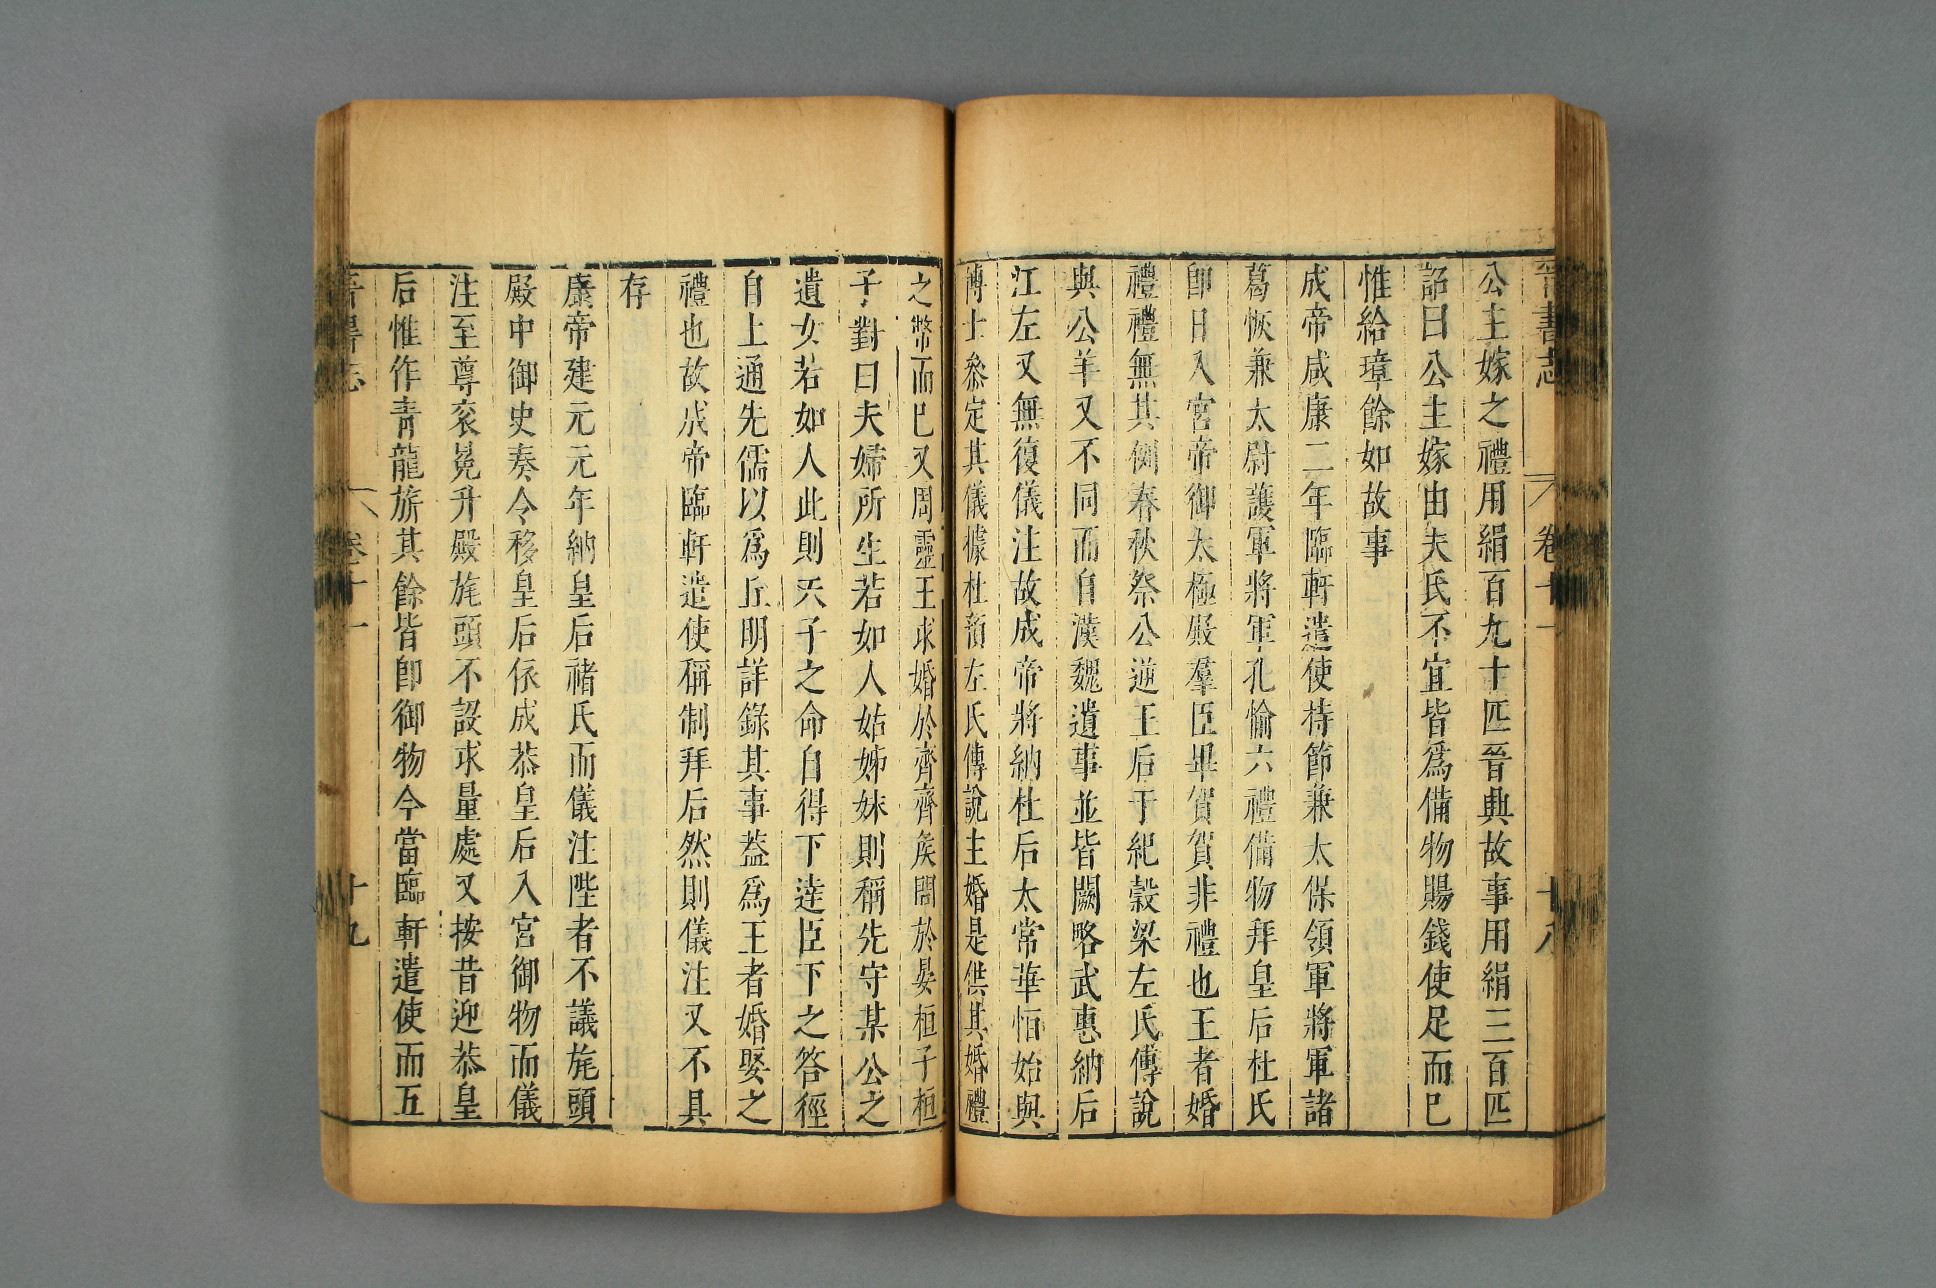 晉書志　卷十一　十八
公主嫁之禮用絹百九十匹晉典故事用絹三百匹
詔曰公主嫁由夫氏不宜皆爲備物賜錢使足而已
惟給璋餘如故事
成帝咸康二年臨軒遣使持節兼太保領軍將軍諸
葛恢兼太尉護軍將軍孔愉六禮備物拜皇后杜氏
卽日入宮帝御太極殿羣臣畢賀賀非禮也王者婚
禮禮無其制春秋祭公逆王后于紀穀梁左氏傳說
與公羊又不同而自漢魏遺事並皆闕略武惠納后
江左又無復儀注故成帝將納杜后太常華恒始與
博士叅定其儀據杜預左氏傳說主婚是供其婚禮
之幣而已又周靈王求婚於齊齊侯問於晏桓子桓
子對曰夫婦所生若如人姑姊妹則稱先守某公之
遺女若如人此則天子之命自得下逹臣下之答徑
自上通先儒以爲丘明詳錄其事蓋爲王者婚娶之
禮也故成帝臨軒遣使稱制拜后然則儀注又不具
存
康帝建元元年納皇后褚氏而儀注陛者不議旄頭
殿中御史奏今移皇后依成恭皇后入宮御物而儀
注至尊衮冕升殿旄頭不設求量處又按昔迎恭皇
后惟作青龍旂其餘皆卽御物今當臨軒遣使而五
晉書志　卷十一　十九